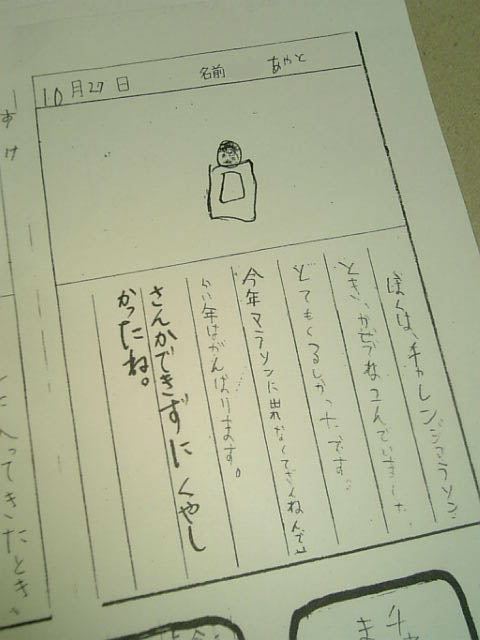 10月27日 名前 あやと
ぼくは、チャレンジマラソン
ときいかぜでねこんでいました
とてもくるしかったです。
今年マラソンに出れなくてざんねんでし
らい年はがんばります。
さんかできずに くやし
かったね。
すけ
入ってきたとき、
チャ
ま